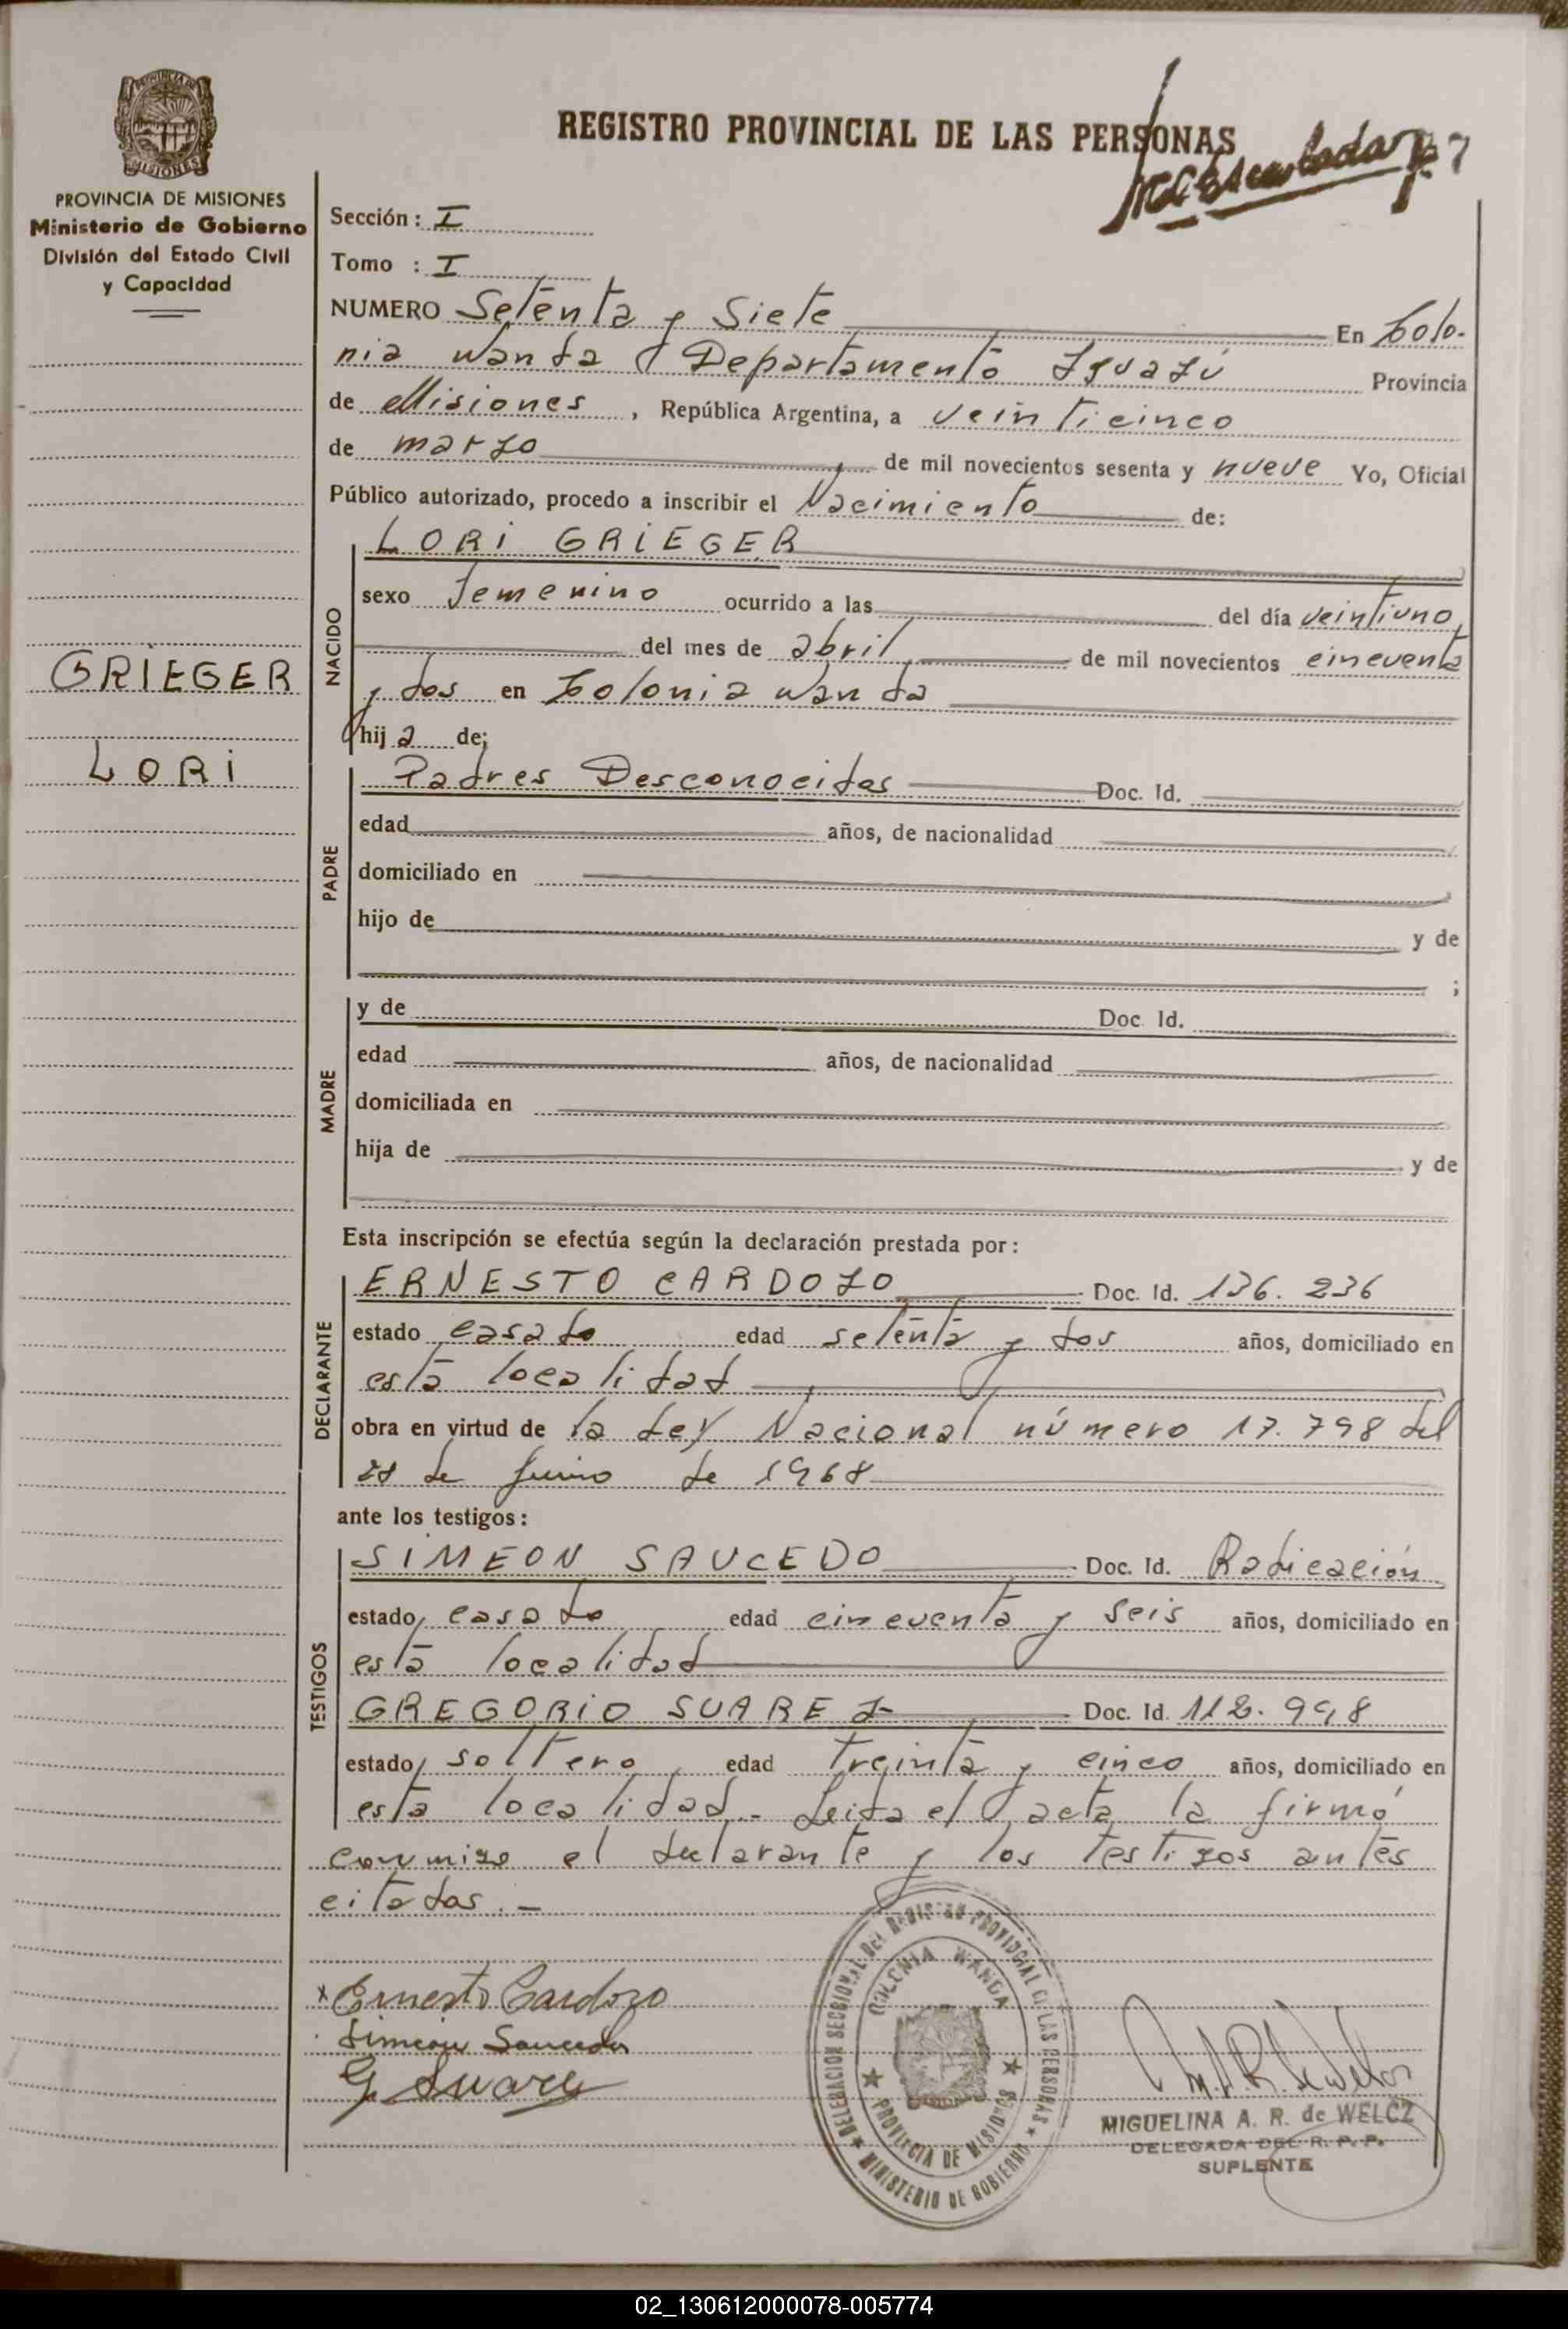 PROVINCIA DE MISIONES
Ministerio de Gobierno
División del Estado Civil
y Capacidad
GRIEGER
LORI
REGISTRO PROVINCIAL DE LAS PERSONAS
Sección: I
Tomo : I
NUMERO Setenta y Siete En Colo-
nia Wanda Departamento Iguazú Provincia
de Misiones, República Argentina, a veinticinco
de marzo de mil novecientos sesenta y nueve Yo, Oficial
Público autorizado, procedo a inscribir el Nacimiento de:
NACIDO
LORI GRIEGER
sexo femenino ocurrido a las del día veintiuno
del mes de abril de mil novecientos cincuenta
y dos en Colonia Wanda
hija de;
PADRE
Padres Desconocidos Doc. Id.
edad años, de nacionalidad
domiciliado en
hijo de y de
;
MADRE
y de Doc. Id.
edad años, de nacionalidad
domiciliada en
hija de y de
Esta inscripción se efectúa según la declaración prestada por:
DECLARANTE
ERNESTO CARDOZO Doc. Id. 136.236
estado casado edad setenta y dos años, domiciliado en
esta localidad
obra en virtud de la Ley Nacional número 17.798 del
de Junio de 1968
ante los testigos:
TESTIGOS
SIMEON SAUCEDO Doc. Id. Radicación
estado casado edad cincuenta y seis años, domiciliado en
esta localidad
GREGORIO SUAREZ Doc. Id. 112.998
estado soltero edad treinta y cinco años, domiciliado en
esta localidad.- Leida el acta la firmó
conmigo el declarante y los testigos antes
citados.-
Ernesto Cardozo
Simeon Saucedo
G. Suarez
DELEGACION SECCIONAL DEL REGISTRO PROVINCIAL DE LAS PERSONAS
COLONIA WANDA
PROVINCIA DE MISIONES
MINISTERIO DE GOBIERNO
MIGUELINA A. R. de WELCZ
DELEGADA DEL R. P. P.
SUPLENTE
02_130612000078-005774